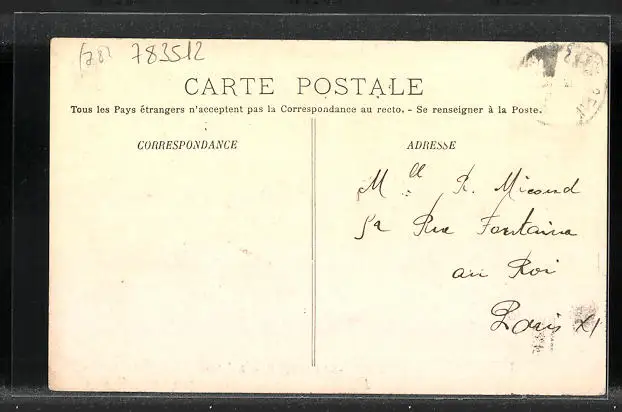 (78) 783512
CARTE POSTALE
Tous les Pays étrangers n'acceptent pas la Correspondance au recto. - Se renseigner à la Poste.
CORRESPONDANCE
ADRESSE
Mlle R. Micond
52 Rue Fontaine
au Roi
Paris XI